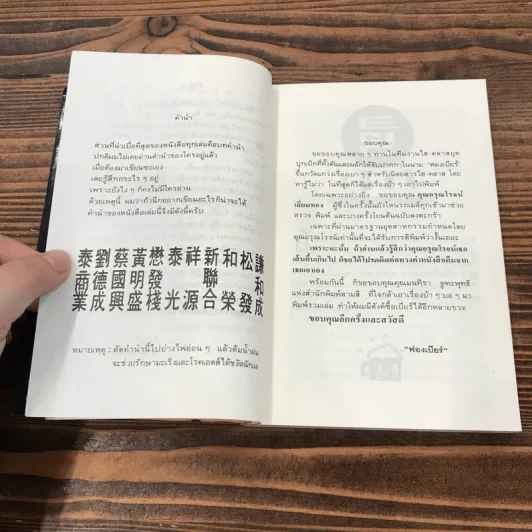 คำนำ
ส่วนที่น่าเบื่อที่สุดของหนังสือทุกเล่มคือบทคำนำ
ปกติผมไม่เคยอ่านคำนำของใครอยู่แล้ว
เมื่อต้องมาเขียนซะเอง
เลยรู้สึกกระไร ๆ อยู่
เพราะยังไง ๆ ก็คงไม่มีใครอ่าน
ด้วยเหตุนี้ ผมว่าถ้านึกอยากเขียนอะไรก็น่าจะได้
คำนำของหนังสือเล่มนี้จึงมีดังนี้ครับ
泰劉蔡黃懋泰祥新和松謙
商德國明發 聯 和
業成興盛棧光源合榮發成
หมายเหตุ : ตัดคำนำนี้ไปย่างไฟอ่อน ๆ แล้วต้มน้ำฝน
จะช่วยรักษามะเร็งและโรคเอดส์ได้ชงัดนักแล
ขอบคุณ
ขอขอบคุณหลาย ๆ ท่านในทีมงานไฮ-คลาสยุค
บุกเบิกที่ทั้งดันและผลักให้จับปากกาในนาม "ฟองเบียร์"
ขึ้นกวัดแกว่งเรื่องเบา ๆ สำหรับนิตยสารไฮ-คลาส โดย
หารู้ไม่ว่า ในที่สุดก็ได้ผลเรื่องบ้า ๆ เอาไปพิมพ์
โดยเฉพาะอย่างยิ่ง ขอขอบคุณ คุณอรุณโรจน์
เลี่ยมทอง ผู้ซึ่งในครั้งนั้นยังโหนรถเมล์ทุกเช้ามาช่วย
ตรวจ พิมพ์ และบางครั้งโยนต้นฉบับลงตะกร้า
เฉพาะที่ผ่านมาตรฐานอุตสาหกรรมกำหนดโดย
คุณอรุณโรจน์เท่านั้นที่จะได้รับการตีพิมพ์ว่างั้นเถอะ
เพราะฉะนั้น ถ้าท่านแล้วรู้สึกว่าคุณอรุณโรจน์เคย
เส้นตื้นเกินไป ก็ขอได้โปรดติดต่อทวงค่าหนังสือคืนจาก
เธอเอาเอง
พร้อมกันนี้ ก็ขอขอบคุณคุณมนทิรา จูฑะพุทธิ
แห่งสำนักพิมพ์สามสี ที่ใจกล้าเอาเรื่องบ้า ๆ บอ ๆ มา
พิมพ์รวมเล่ม ทำให้ผมมีตังค์ซื้อเบียร์ได้อีกหลายขวด
ขอบคุณอีกครั้งและสวัสดี
"ฟองเบียร์"